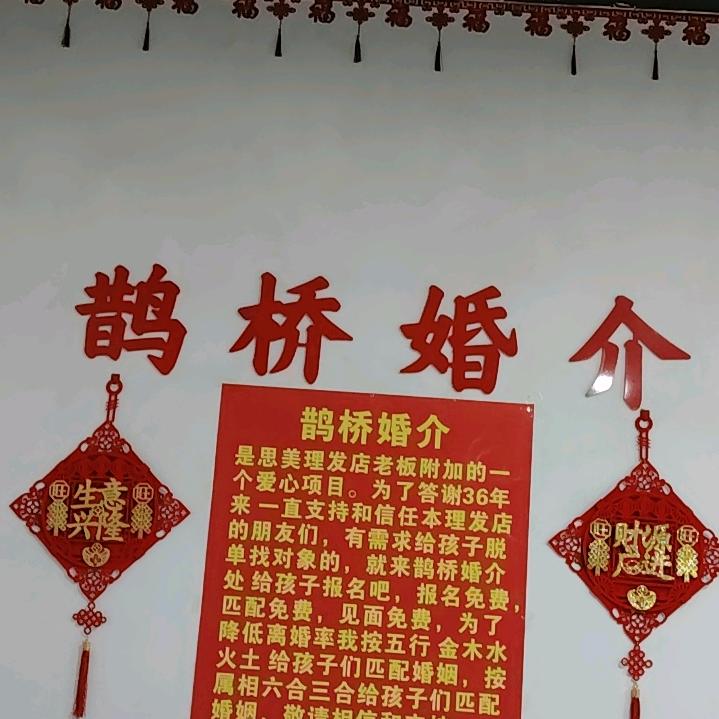 鹊桥婚介
鹊桥婚介
是思美理发店老板附加的一
个爱心项目。为了答谢36年
来一直支持和信任本理发店
的朋友们，有需求给孩子脱
单找对象的，就来鹊桥婚介
处给孩子报名吧，报名免费，
匹配免费，见面免费，为了
降低离婚率我按五行 金木水
火土 给孩子们匹配婚姻，按
属相六合三合给孩子们匹配
婚姻，敬请相信和支持
旺 生意 旺
兴隆
旺 财源 旺
广进